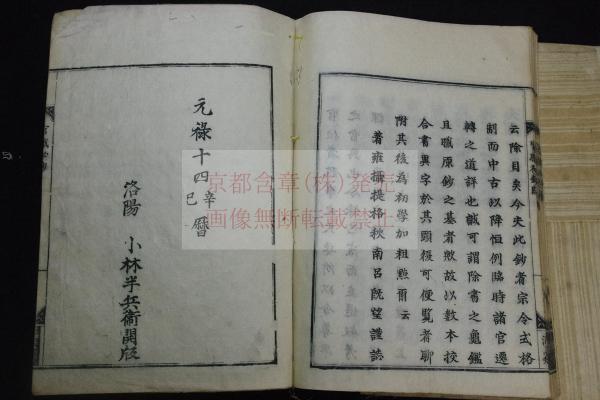 云除目矣今夫此鈔者宗令式格
制而中古以降恒例臨時諸官遷
轉之道詳也誠可謂除書之龜鑑
且職原鈔之基者歟故以數本挍
合書異字於其頭綴可便覧者聊
附其後為初學加粗點爾云
著雍攝提格秋南呂既望謹誌
元祿十四辛巳曆
洛陽 小林半兵衛開版
京都含章(株)発売
画像無断転載禁止